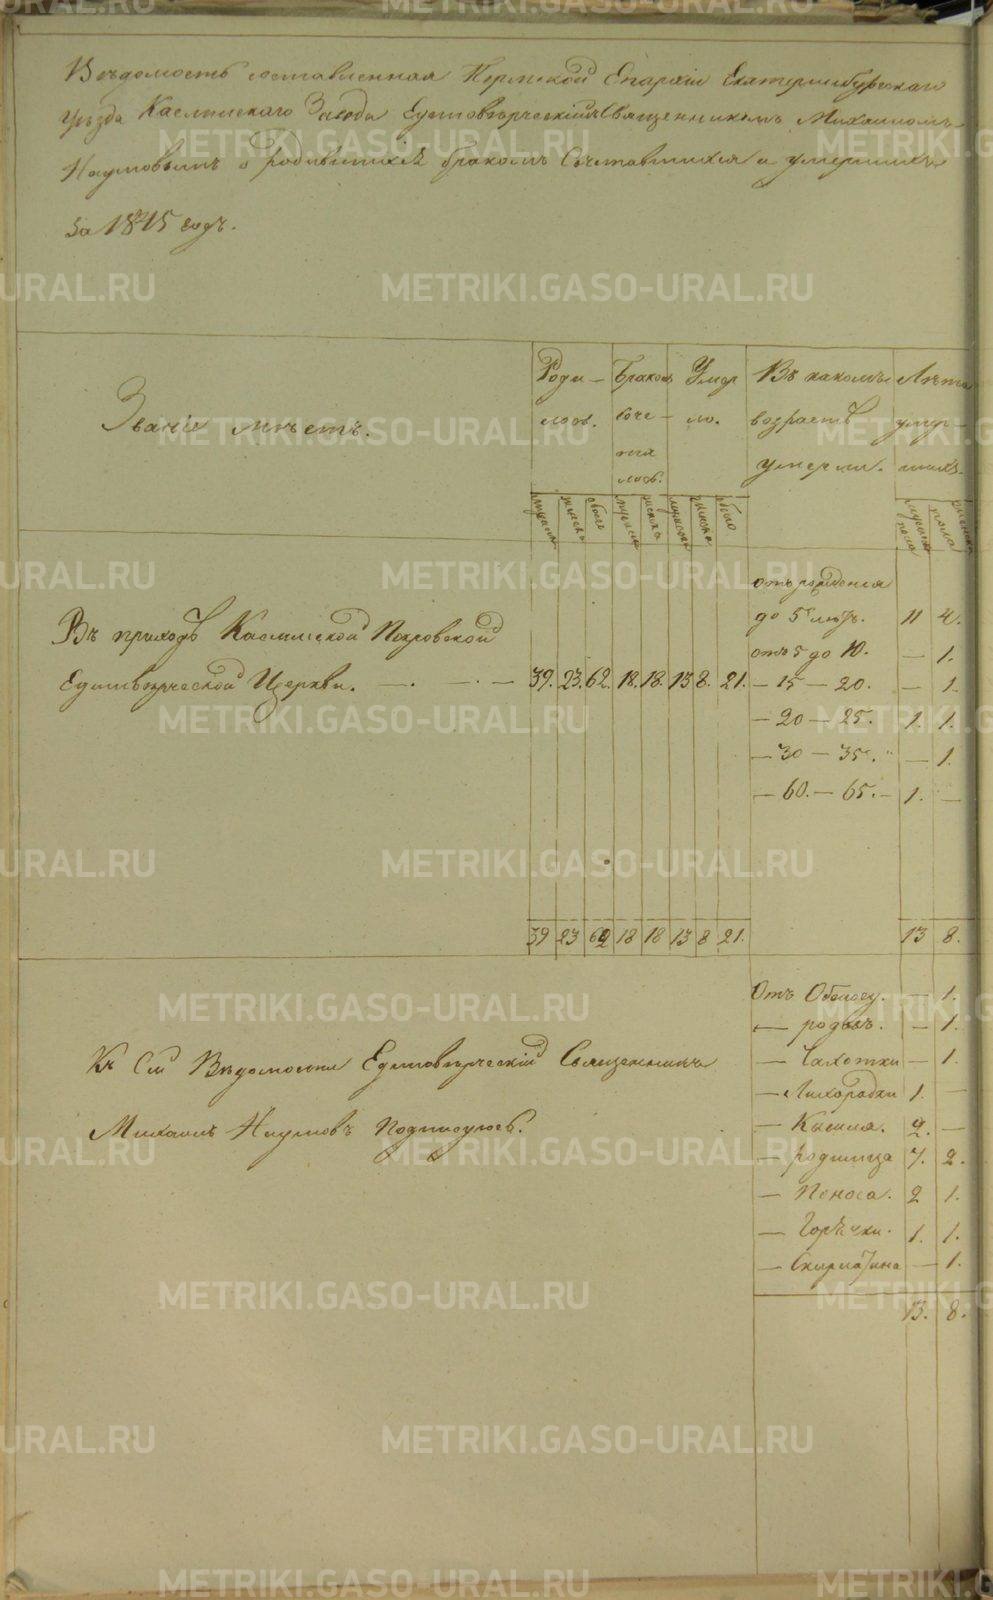 Вѣдомость составленная Пермской Епархіи Екатеринбургскаго
уѣзда Каслинскаго Завода Единовѣрческимъ Священникомъ Михаиломъ
Наумовымъ о родившихся бракомъ Сочетавшихся и умершихъ
За 1845 годъ.
Званіе мѣстъ.
Роди-
лось.
Бракомъ
соче-
та
лось.
Умер
ло.
Въ какомъ
возрастѣ
умерли.
Лѣта
умер-
шихъ.
мужеска женска обоего мужеска женска мужеска женска обоего
мужеска пола женска пола
Въ приходѣ Каслинской Покровской
Единовѣрческой Церкви. 39. 23. 62. 18. 18. 13 8. 21.
отъ рожденія
до 5 лѣтъ. 11 4.
отъ 5 до 10. — 1.
— 15 — 20. — 1.
— 20 — 25. 1. 1.
— 30 — 35. — 1.
— 60. — 65. — 1. —
39 23 62 18 18 13 8 21. 13 8.
Отъ — 1.
— родовъ. — 1.
— Чахотки — 1.
— Лихорадки 1. —
— Кашля. 2. —
— родимца 7. 2.
— Поноса. 2 1.
— Горячки. 1. 1.
— Скарлатина — 1.
13. 8.
Къ Сей Вѣдомости Единовѣрческій Священникъ
Михаилъ Наумовъ Подписуюсь.
METRIKI.GASO-URAL.RU